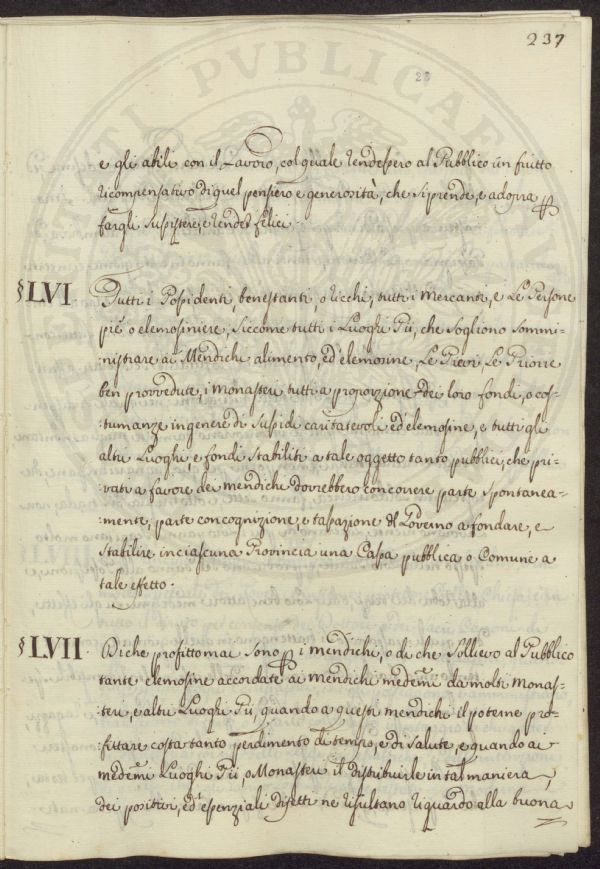 237
28
e gli abili con il Lavoro, col quale rendessero al Pubblico un frutto
ricompensativo di quel pensiero e generosità, che si prende, e adopra p
fargli sussistere, e render felici.
§ LVI Tutti i Possidenti, benestanti, o ricchi, tutti i Mercanti, e Le Persone
pie o elemosiniere, siccome tutti i Luoghi Pii, che sogliono sommi-
nistrare ai Mendichi alimento, ed elemosine, Le Pievi, Le Priorie
ben provvedute, i Monasteri tutti a proporzione dei loro fondi, o cos-
tumanze in genere di sussidi caritatevoli ed elemosine, e tutti gli
altri Luoghi, e fondi stabiliti a tale oggetto tanto pubblici, che pri-
vati a favore dei mendichi dovrebbero concorrere parte spontanea-
mente, parte con cognizione, e tassazione del Governo a fondare, e
stabilire in ciascuna Provincia una Cassa pubblica o Comune a
tale effetto.
§ LVII. Di che profitto mai sono p i mendichi, o di che sollievo al Pubblico
tante elemosine accordate ai mendichi medemi da molti Monas-
teri, e altri Luoghi Pii, quando a questi mendichi il poterne pro-
fittare costa tanto perdimento di tempo, e di salute, e quando ai
medemi Luoghi Pii, o Monasteri il distribuirle in tal maniera,
dei positivi, ed essenziali difetti ne risultano riguardo alla buona